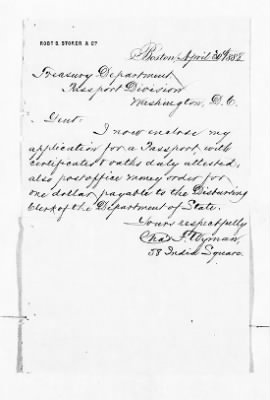 ROBT S. STORER & CO
Boston, April 30th 1888
Treasury Department
Passport Division
Washington, D.C.
Gent:
I now enclose my
application for a Passport, with
certificates & oaths duly attested,
also post office money order for
one dollar payable to the Disbursing
Clerk of the Department of State.
Yours respectfully
Chas. F. Wyman,
58 India Square